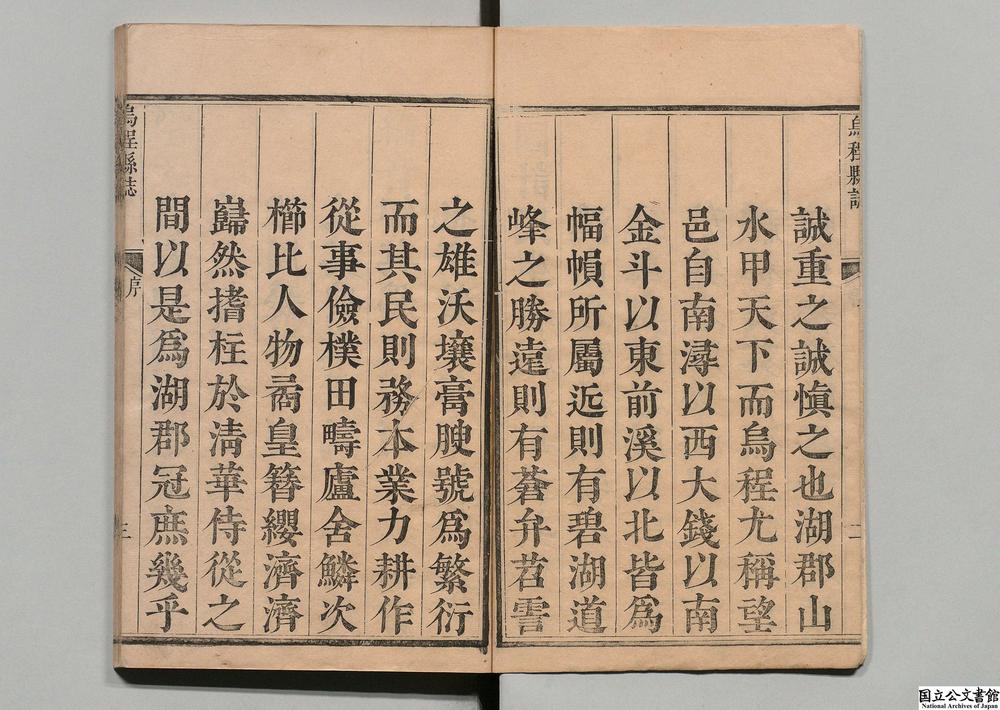 烏程縣誌
二
誠重之誠愼之也湖郡山
水甲天下而烏程尤稱望
邑自南潯以西大錢以南
金斗以東前溪以北皆爲
幅幀所屬近則有碧湖道
峰之勝遠則有蒼弁苕霅
之雄沃壤膏腴號爲繁衍
而其民則務本業力耕作
從事儉樸田疇廬舍鱗次
櫛比人物矞皇簪纓濟濟
巋然搘柱於淸華侍從之
間以是爲湖郡冠庶幾乎
烏程縣誌
序
三
国立公文書館
National Archives of Japan